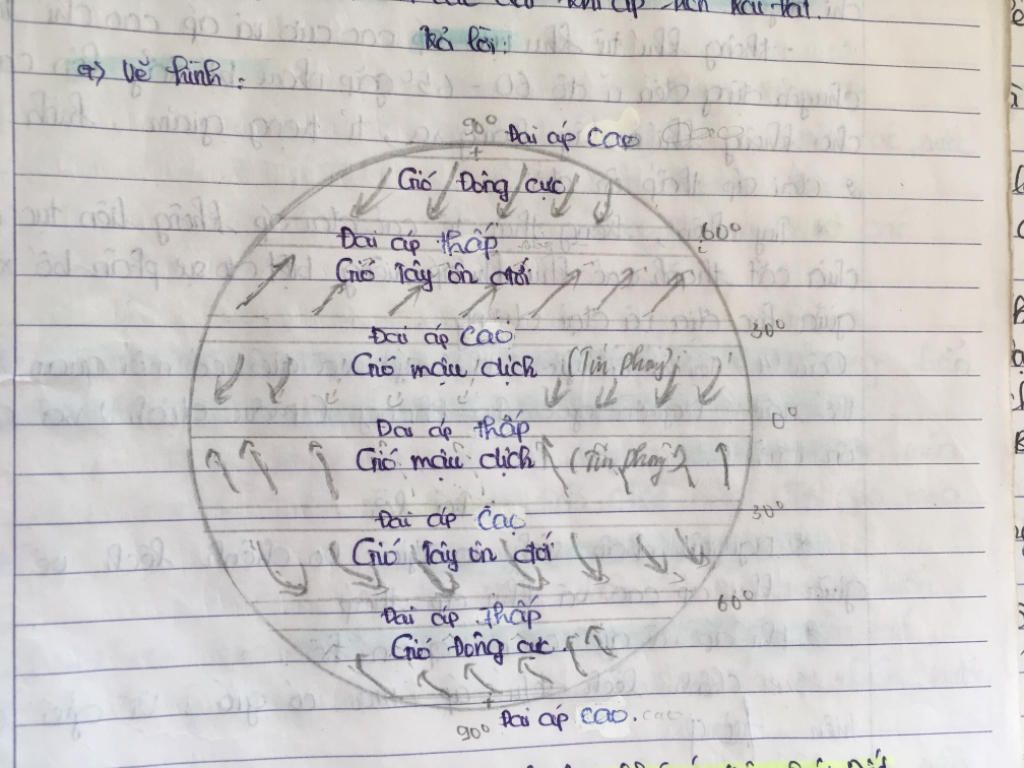 khí áp
Trả lời:
a) Vẽ hình:
90° Đai áp cao
Gió Đông cực
60°
Đai áp thấp
Gió Tây ôn đới
Đai áp cao
30°
Gió mậu dịch (Tín phong)
0°
Đai áp thấp
Gió mậu dịch (Tín phong)
Đai áp cao
30°
Gió Tây ôn đới
60°
Đai áp thấp
Gió Đông cực
90° Đai áp cao.